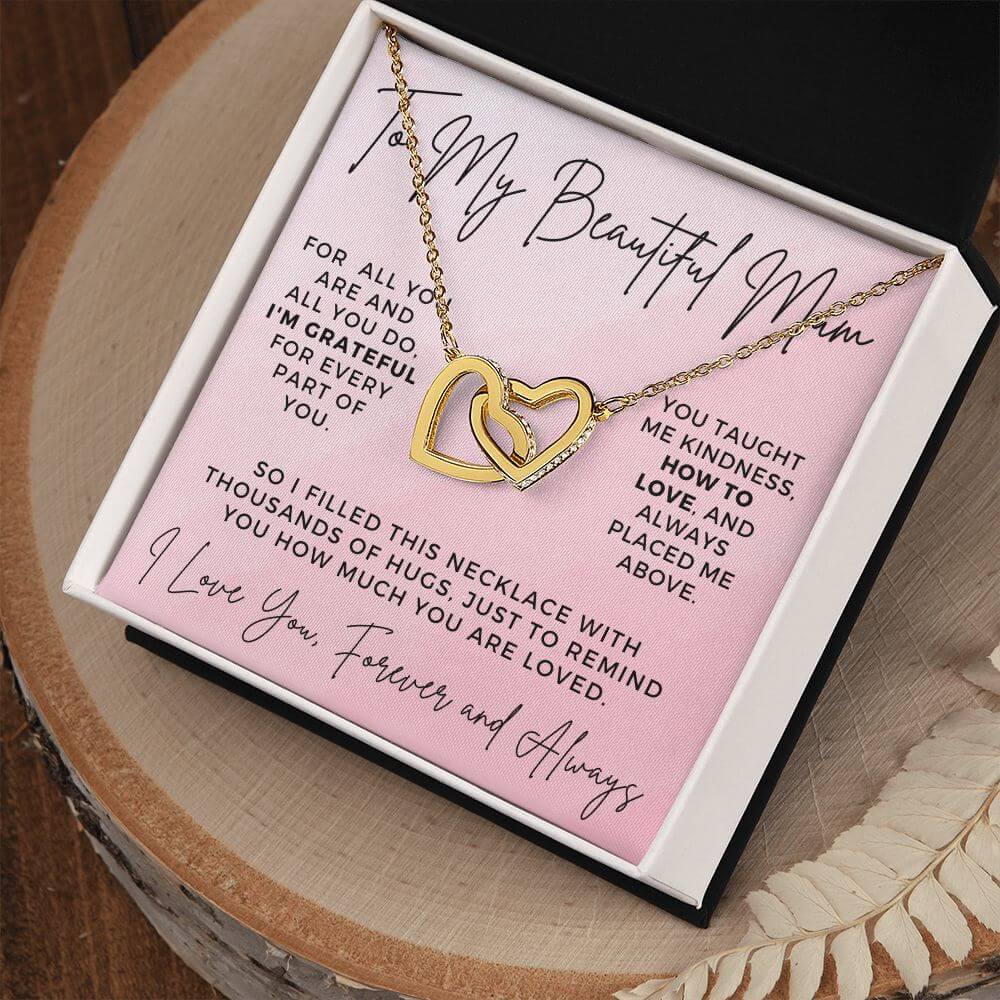 To My Beautiful Mum
FOR ALL YOU
ARE AND
ALL YOU DO,
I'M GRATEFUL
FOR EVERY
PART OF
YOU.
YOU TAUGHT
ME KINDNESS,
HOW TO
LOVE, AND
ALWAYS
PLACED ME
ABOVE.
SO I FILLED THIS NECKLACE WITH
THOUSANDS OF HUGS, JUST TO REMIND
YOU HOW MUCH YOU ARE LOVED.
I Love You, Forever and Always